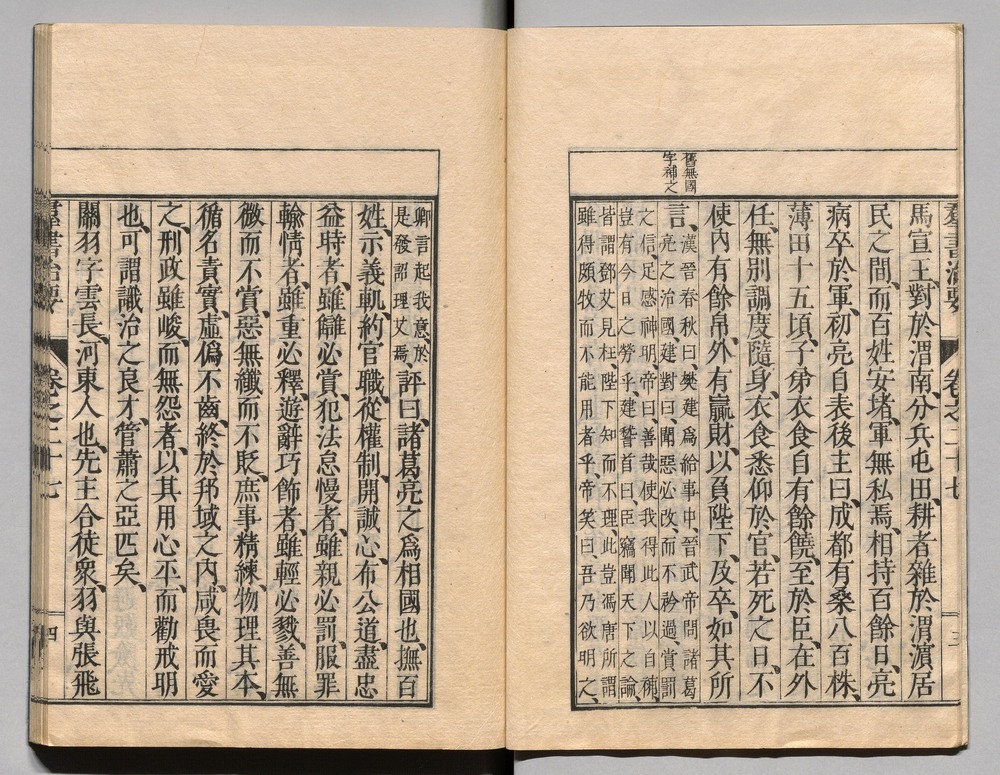 羣書治要 卷之二十七 三
舊無國
字補之
馬宣王、對於渭南、分兵屯田、耕者雜於渭濱居
民之間、而百姓安堵、軍無私焉、相持百餘日、亮
病卒於軍、初亮自表後主曰、成都有桑八百株、
薄田十五頃、子弟衣食、自有餘饒、至於臣在外
任、無別調度、隨身衣食、悉仰於官、若死之日、不
使內有餘帛、外有贏財、以負陛下、及卒、如其所
言、
漢晉春秋曰、樊建爲給事中、晉武帝問諸葛
亮之治國、建對曰、聞惡必改、而不矜過、賞罰
之信、足感神明、帝曰善哉、使我得此人以自稀、
豈有今日之勞乎、建稽首曰、臣竊聞天下之論、
皆謂鄧艾見枉、陛下知而不理、此豈馮唐所謂
雖得頗牧而不能用者乎、帝笑曰、吾乃欲明之、
卿言起我意、於
是發詔理艾焉、
評曰、諸葛亮之爲相國也、撫百
姓、示義軌、約官職、從權制、開誠心、布公道、盡忠
益時者、雖讎必賞、犯法怠慢者、雖親必罰、服罪
輸情者、雖重必釋、遊辭巧飾者、雖輕必戮、善無
微而不賞、惡無纖而不貶、庶事精練、物理其本、
循名責實、虛僞不齒、終於邦域之內、咸畏而愛
之、刑政雖峻、而無怨者、以其用心平、而勸戒明
也、可謂識治之良才、管蕭之亞匹矣、
關羽字雲長、河東人也、先主合徒衆、羽與張飛
羣書治要 卷之二十七 四